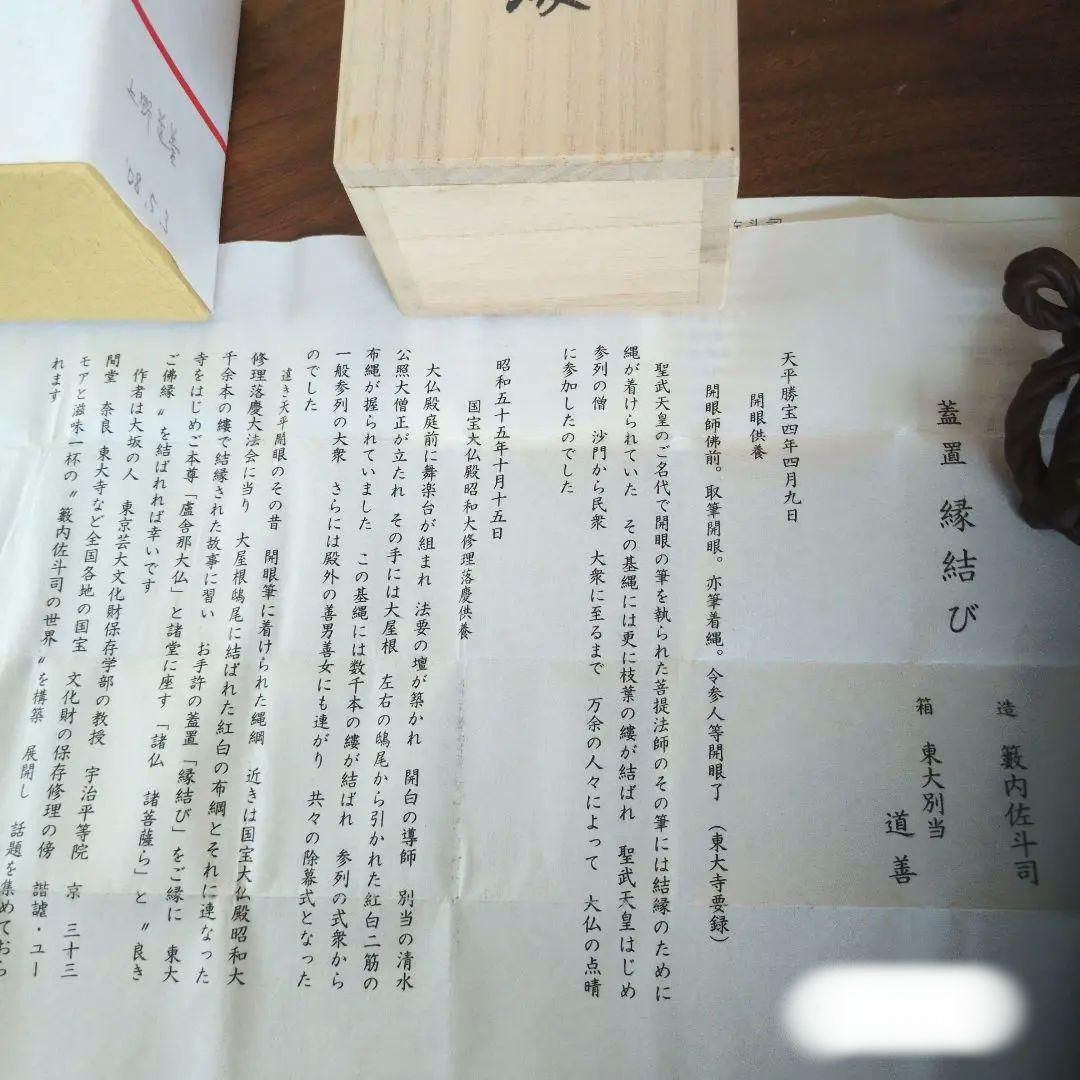 蓋置 縁結び
造 籔内佐斗司
箱 東大別当
道善
天平勝宝四年四月九日
開眼供養
開眼師佛前。取筆開眼。亦筆着縄。令参人等開眼了 (東大寺要録)
聖武天皇のご名代で開眼の筆を執られた菩提法師のその筆には結縁のために
縄が着けられていた その基縄には更に枝葉の縷が結ばれ 聖武天皇はじめ
参列の僧 沙門から民衆 大衆に至るまで 万余の人々によって 大仏の点晴
に参加したのでした
昭和五十五年十月十五日
国宝大仏殿昭和大修理落慶供養
大仏殿庭前に舞楽台が組まれ 法要の壇が築かれ 開白の導師 別当の清水
公照大僧正が立たれ その手には大屋根 左右の鴟尾から引かれた紅白二筋の
布縄が握られていました この基縄には数千本の縷が結ばれ 参列の式衆から
一般参列の大衆 さらには殿外の善男善女にも連がり 共々の除幕式となった
のでした
遠き天平開眼のその昔 開眼筆に着けられた縄綱 近きは国宝大仏殿昭和大
修理落慶大法会に当り 大屋根鴟尾に結ばれた紅白の布綱とそれに連なった
千余本の縷で結縁された故事に習い お手許の蓋置「縁結び」をご縁に 東大
寺をはじめご本尊「盧舎那大仏」と諸堂に座す「諸仏 諸菩薩ら」と〝良き
ご佛縁〟を結ばれれば幸いです
作者は大坂の人 東京芸大文化財保存学部の教授 宇治平等院 京 三十三
間堂 奈良 東大寺など全国各地の国宝 文化財の保存修理の傍 諧謔・ユー
モアと滋味一杯の〝籔内佐斗司の世界〟を構築 展開し 話題を集めておら
れます
'08.5.3
佐斗司